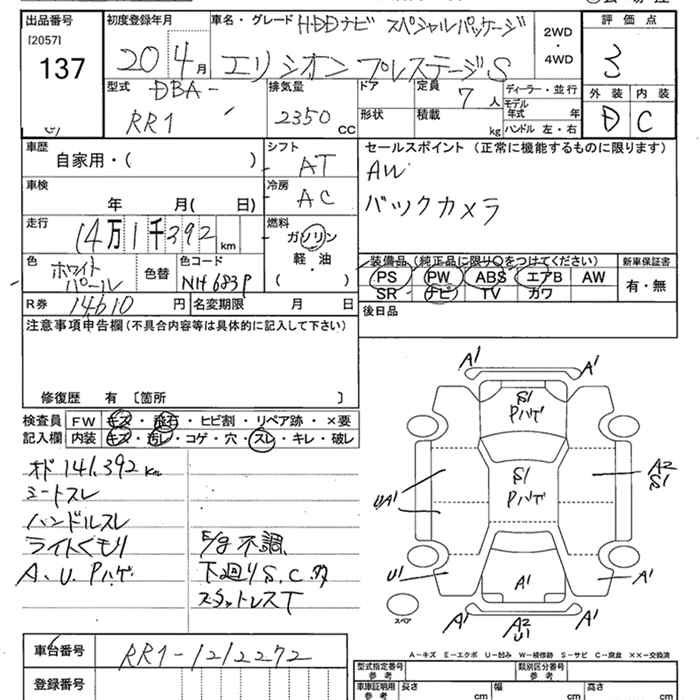 出品番号
[2057]
137
初度登録年月
20 4月
車名・グレード HDDナビ スペシャルパッケージ
エリシオン プレステージS
2WD
・
4WD
評価点
3
外装 内装
D C
型式
DBA-
RR1
排気量
2350 CC
ドア
形状
定員
7人
積載
kg
ディーラー・並行
モデル
年式 年
ハンドル 左・右
車歴
自家用・( )
シフト
AT
車検
年 月( 日)
冷房
AC
セールスポイント(正常に機能するものに限ります)
AW
バックカメラ
走行
14万1千392km
燃料
ガソリン
軽・油
( )
色
ホワイト
パール
色替
色コード
NH683P
装備品(純正品に限り○をつけてください)
PS PW ABS エアB AW
SR ナビ TV カワ
新車保証書
有・無
R券 14610円
名変期限 月 日
後日品
注意事項申告欄(不具合内容等は具体的に記入して下さい)
修復歴 有 〔箇所 〕
検査員
記入欄
FW キズ・飛石・ヒビ割・リペア跡・×要
内装 キズ・汚レ・コゲ・穴・スレ・キレ・破レ
オド141,392km
シートスレ
ハンドルスレ
ライトくもり
A、U、Pハゲ
E/g不調
下廻りS、C、多
スタットレスT
A1 A1
S1
Pハゲ
S1
Pハゲ
UA1
A2
S1
U1
A1
A1
A1
A2
U1
A1
スペア
A-キズ E-エクボ U-凹み W-補修跡 S-サビ C-腐食 ××-交換済
車台番号
RR1-1212272
登録番号
型式指定番号
参考
類別区分番号
参考
車庫証明用
参考
長さ cm
幅 cm
高さ cm